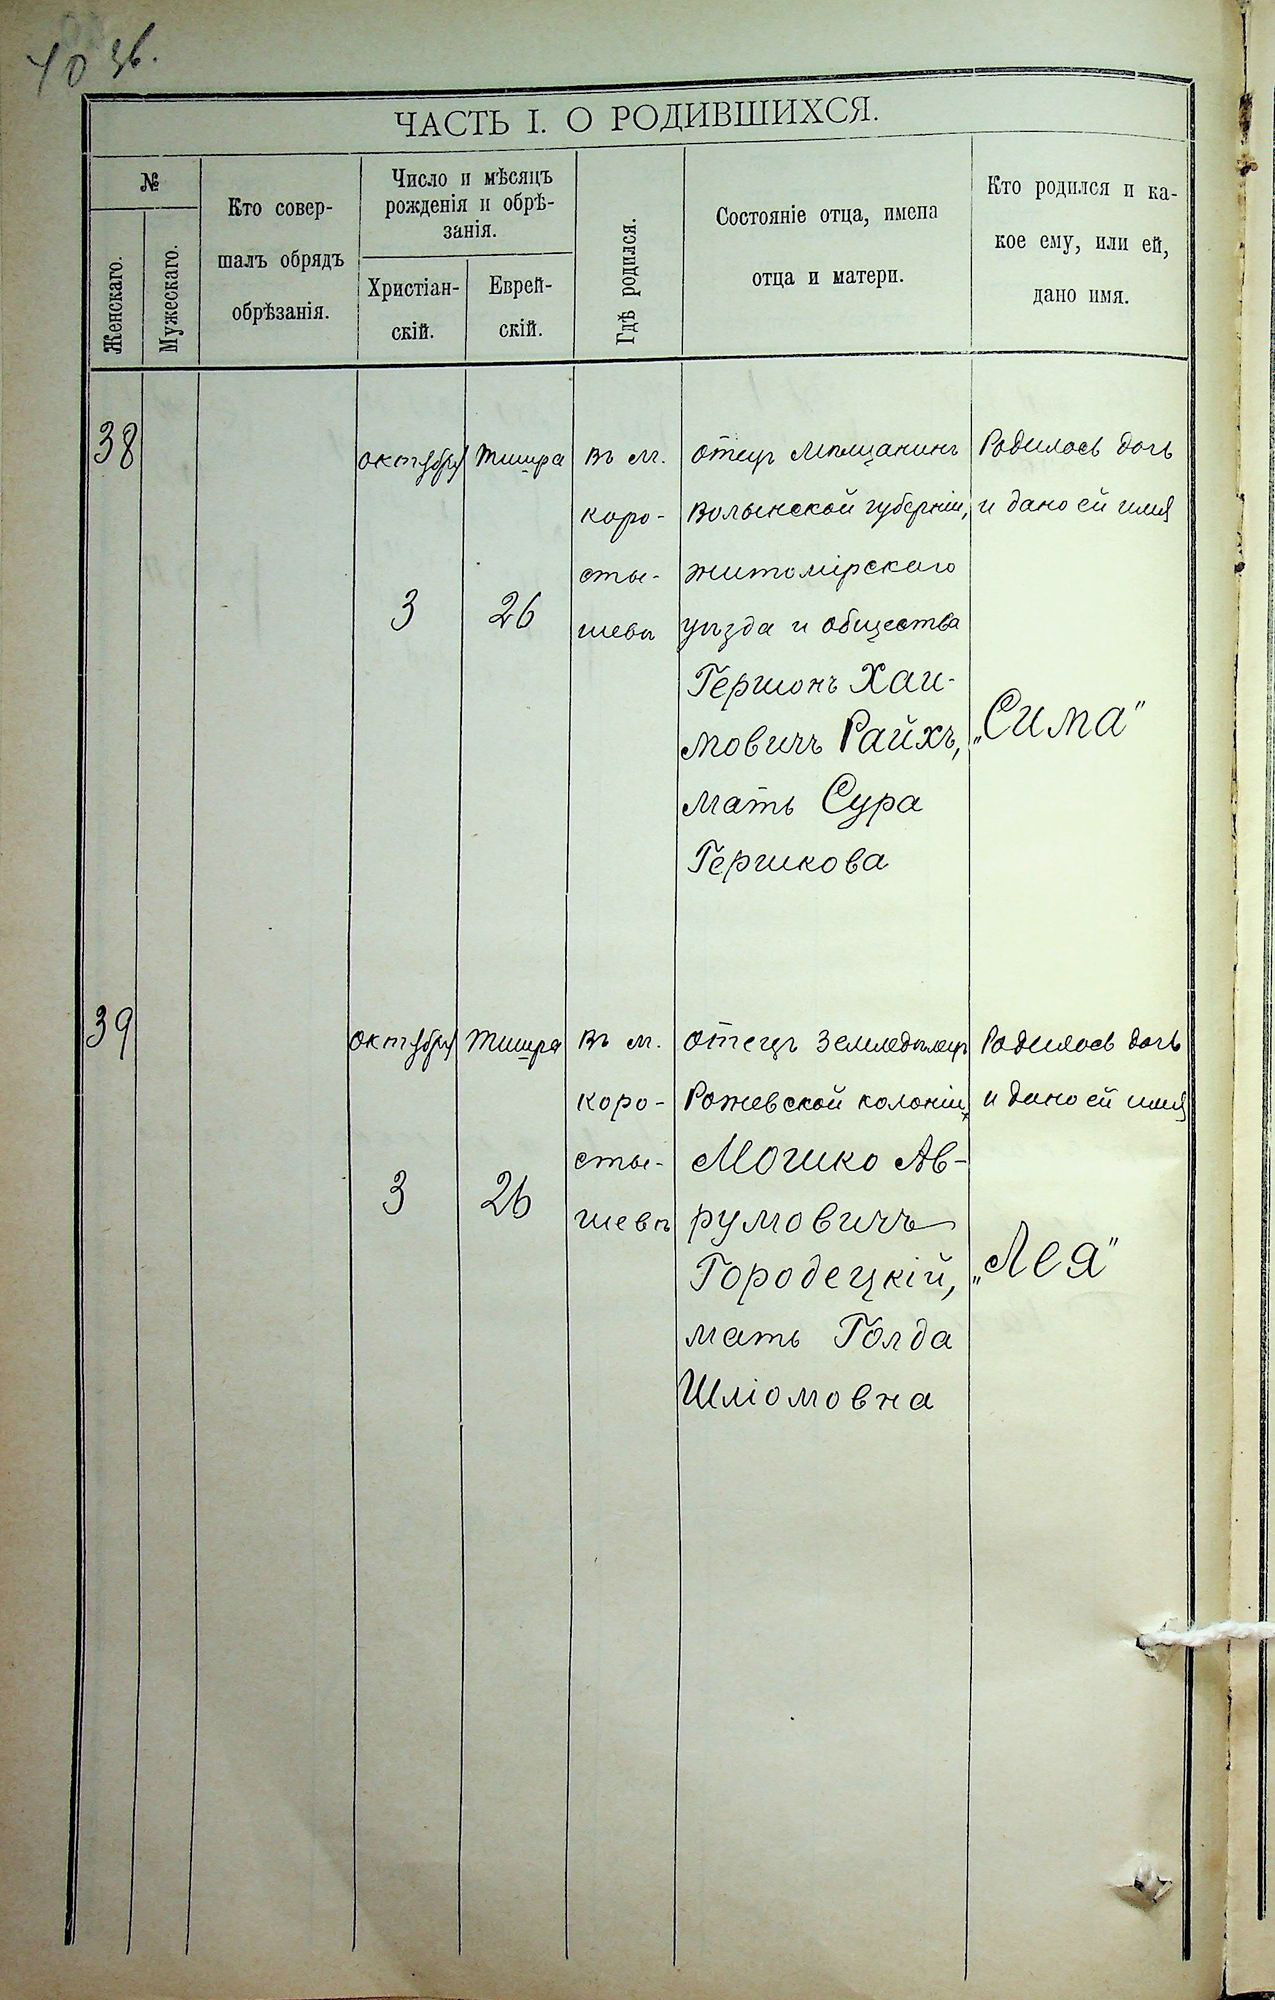 40 зв.
ЧАСТЬ I. О РОДИВШИХСЯ.
№
Женскаго.
Мужескаго.
Кто совер-
шалъ обрядъ
обрѣзанія.
Число и мѣсяцъ
рожденія и обрѣ-
занія.
Христіан-
скій.
Еврей-
скій.
Гдѣ родился.
Состояніе отца, имена
отца и матери.
Кто родился и ка-
кое ему, или ей,
дано имя.
38
октября
3
Тишра
26
въ м.
коро-
сты-
шевѣ
отецъ мѣщанинъ
Волынской губерніи,
житомірскаго
уѣзда и общества
Гершонъ Хаи-
мовичъ Райхъ,
мать Сура
Гершкова
Родилась дочь
и дано ей имя
„Сима"
39
октября
3
Тишра
26
въ м.
коро-
сты-
шевѣ
отецъ земледѣлецъ
Рожевской колоніи,
Мошко Ав-
румовичъ
Городецкій,
мать Голда
Шліомовна
Родилась дочь
и дано ей имя
„Лея"